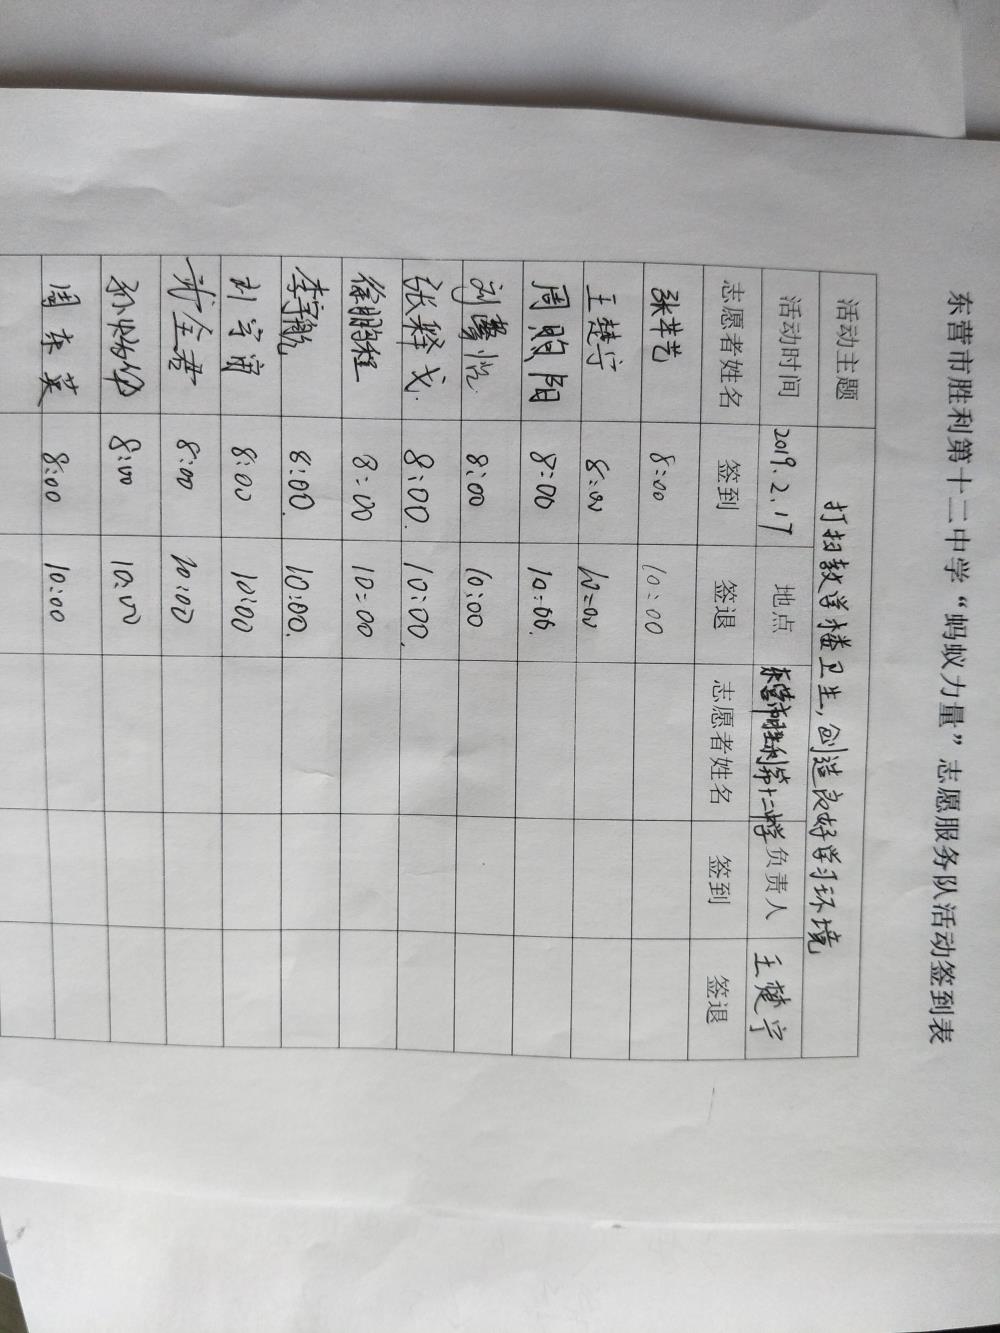 东营市胜利第十二中学“蚂蚁力量”志愿服务队活动签到表
活动主题 打扫教学楼卫生,创造良好学习环境
活动时间 2019.2.17 地点 东营市胜利第十二中学 负责人 王楚宁
志愿者姓名 签到 签退 志愿者姓名 签到 签退
张苹艺 8:00 10:00
王楚宁 8:00 10:00
周明阳 8:00 10:00.
刘馨怡 8:00 10:00
张释戈. 8:00. 10:00.
徐鹏程 8:00 10:00
李宇锐 8:00. 10:00.
刘宁宙 8:00 10:00
武全君 8:00 10:00
8:00 10:00
周东英 8:00 10:00